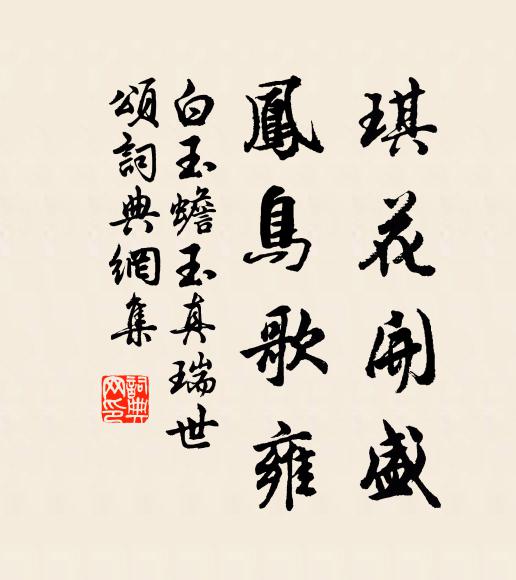 琪花開盛
鳳鳥歌雍
白玉蟾玉真瑞世
頌詞典網集
詞典
网印